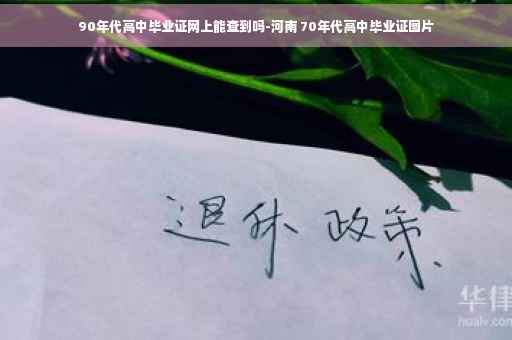 90年代高中毕业证网上能查到吗-河南70年代高中毕业证图片
退休 政策
华律
hualv.com